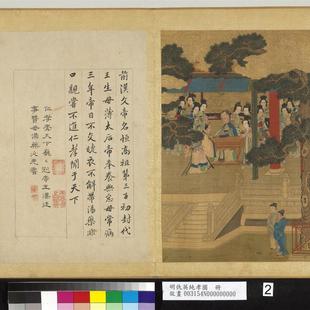 前漢文帝名恒高祖第三子初封代
王生母薄太后帝奉養無怠母常病
三年帝目不交睫衣不解帶湯藥非
口親嘗不進仁孝聞于天下
仁孝臨天下巍冠王漢廷
事賢母湯藥必先嘗
明仇英純孝圖 冊
故畫 003154N000000000
2